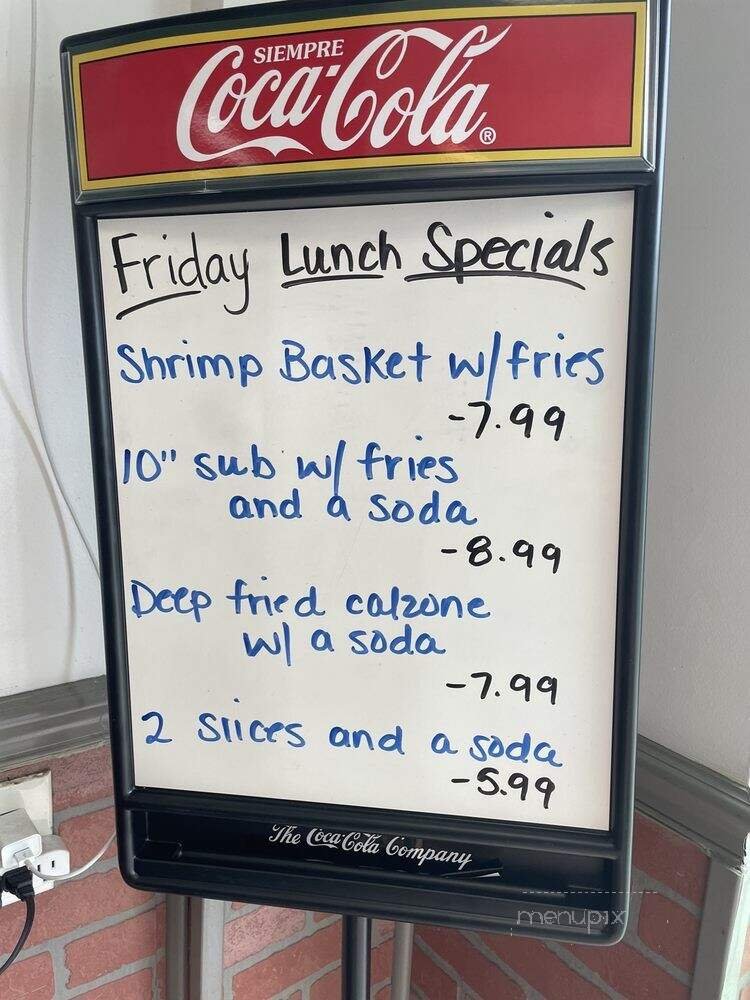 SIEMPRE
Coca-Cola®
Friday Lunch Specials
Shrimp Basket w/fries
-7.99
10" sub w/ fries
and a soda
-8.99
Deep fried calzone
w/ a soda
-7.99
2 slices and a soda
-5.99
The Coca-Cola Company
menupix